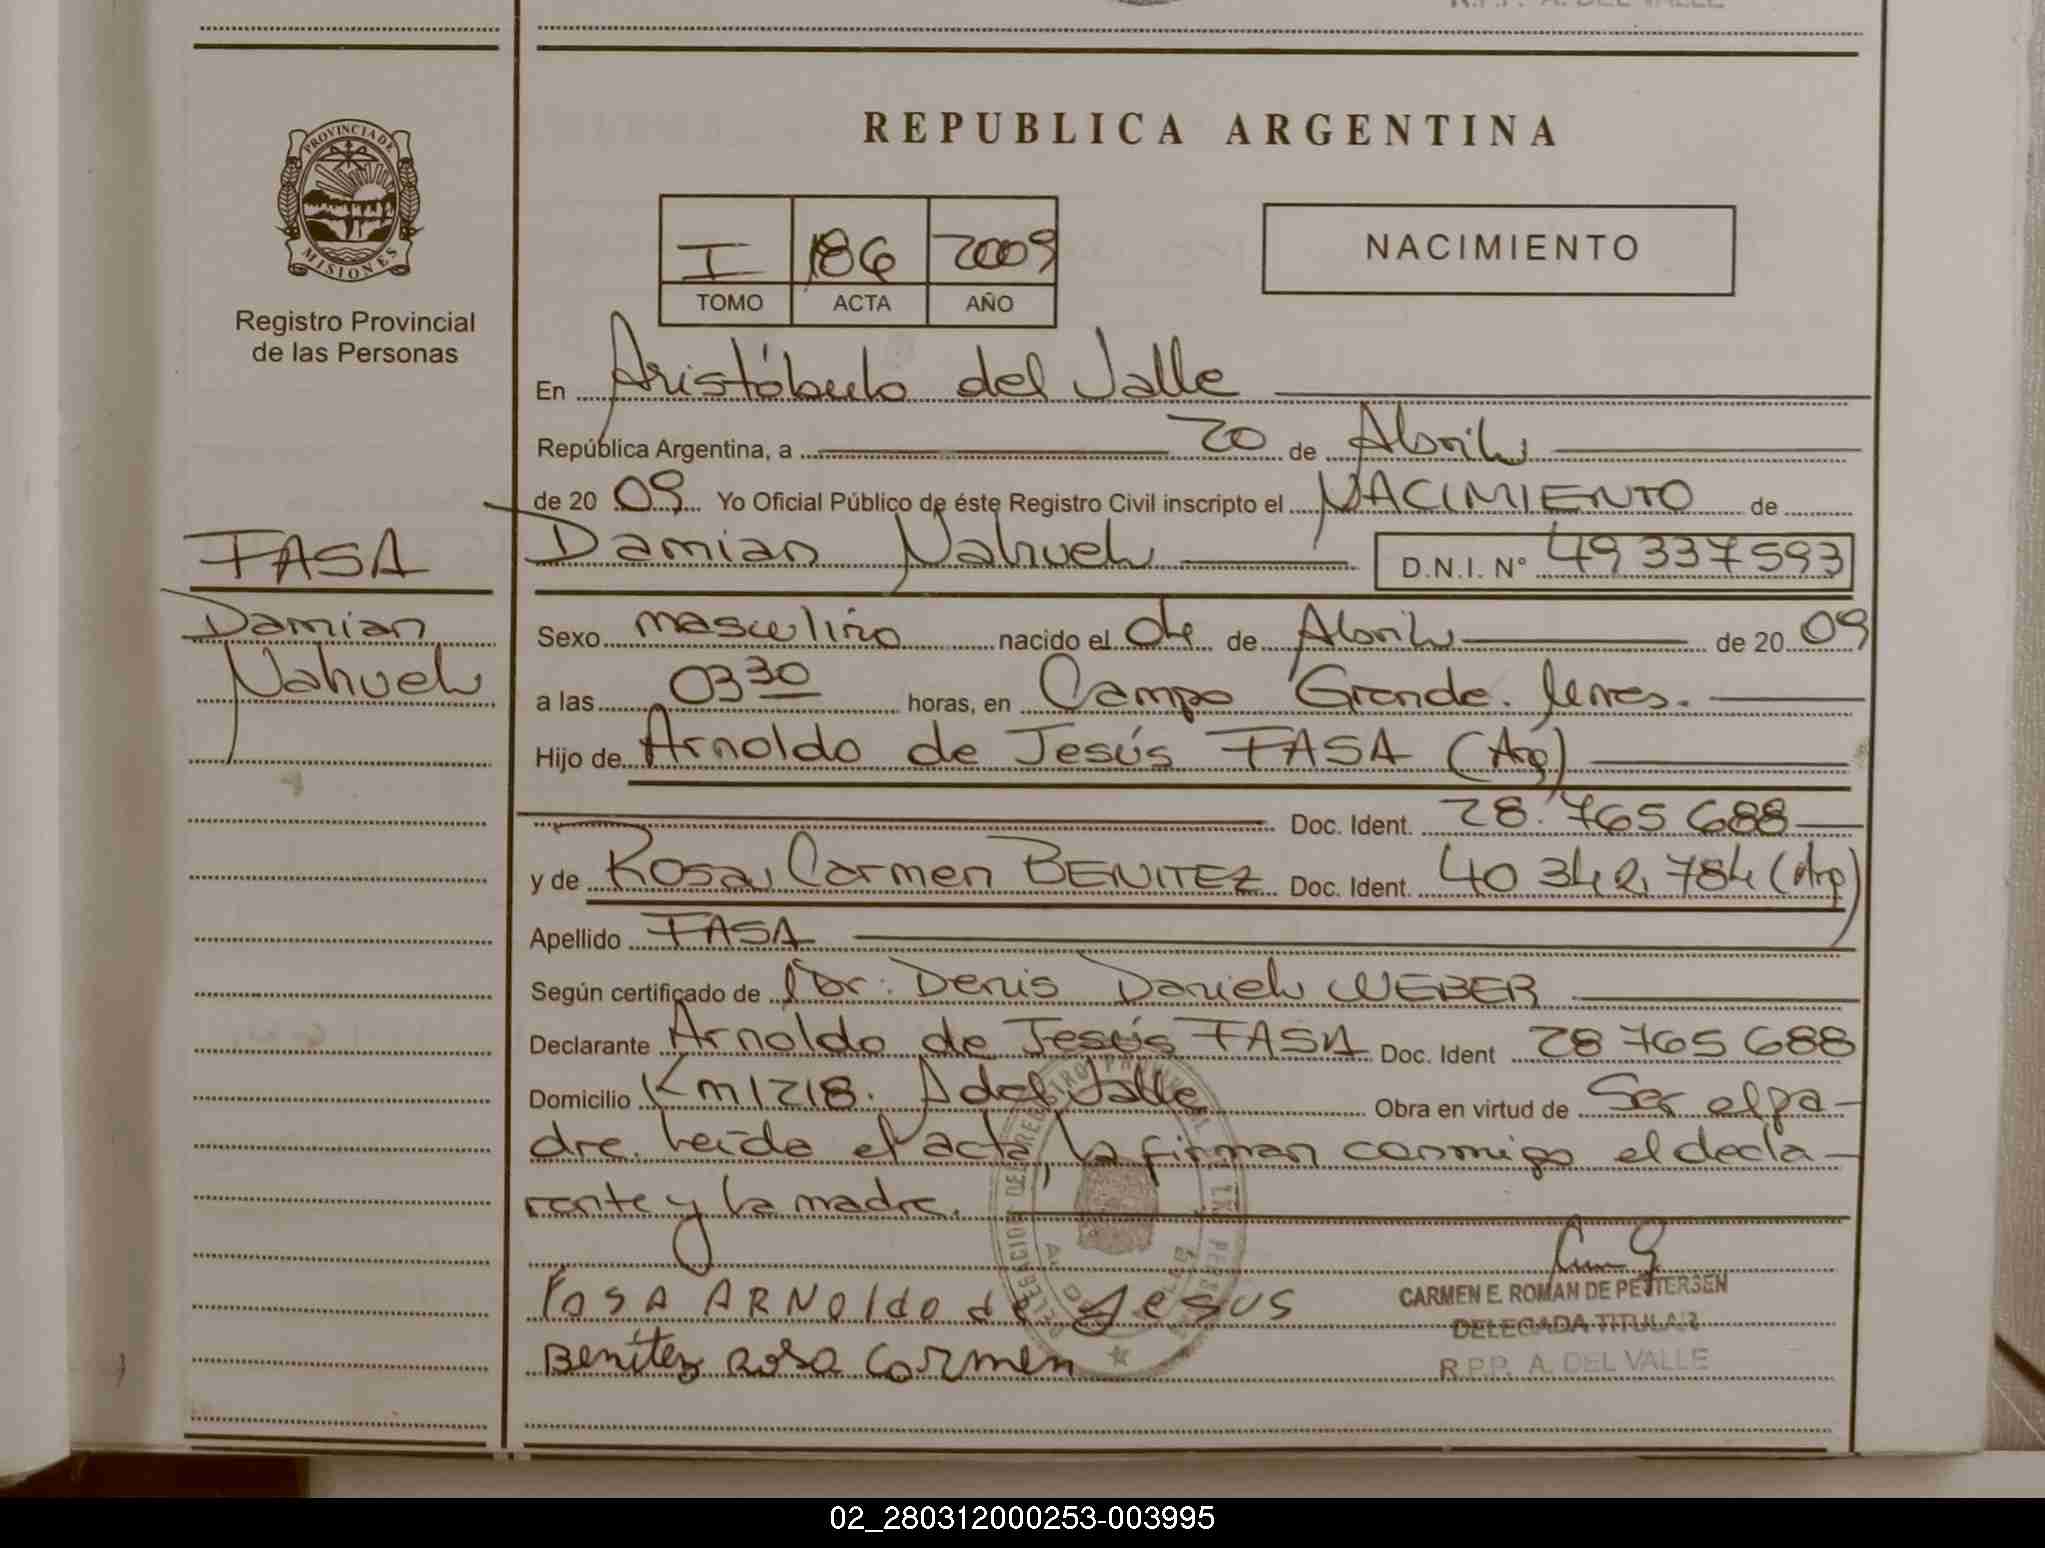 R.P.P. A. DEL VALLE
PROVINCIA DE
MISIONES
Registro Provincial
de las Personas
REPUBLICA ARGENTINA
I 186 2009
TOMO ACTA AÑO
NACIMIENTO
En Aristóbulo del Valle
República Argentina, a 20 de Abril
de 2009 Yo Oficial Público de éste Registro Civil inscripto el NACIMIENTO de
FASA
Damian Nahuel D.N.I. N° 49 337 593
Damian
Nahuel
Sexo masculino nacido el 04 de Abril de 2009
a las 03 30 horas, en Campo Grande.
Hijo de Arnoldo de Jesús FASA (Arg)
Doc. Ident. 28.765 688
y de Rosa Carmen BENITEZ Doc. Ident. 40 342 784 (Arg)
Apellido FASA
Según certificado de Dr. Denis Daniel WEBER
Declarante Arnoldo de Jesús FASA Doc. Ident 28 765 688
Domicilio Km 1218. A del Valle Obra en virtud de Ser el pa-
dre. Leída el acta, la firman conmigo el decla-
rante y la madre.
FASA ARNOLDO de JESUS
Benítez Rosa Carmen
CARMEN E. ROMAN DE PETTERSEN
DELEGADA TITULAR
R.P.P. A. DEL VALLE
02_280312000253-003995